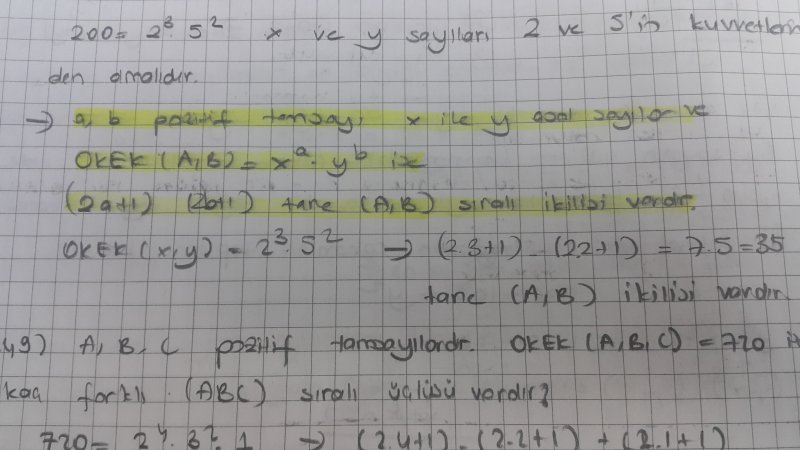 200= 2³. 5² x ve y sayıları 2 ve 5'in kuvvetlerin
den olmalıdır.
→ a, b pozitif tamsayı, x ile y asal sayılar ve
OKEK (A,B) = xᵃ. yᵇ ise
(2a+1) (2b+1) tane (A,B) sıralı ikilisi vardır.
OKEK (x,y) = 2³.5² → (2.3+1). (2.2+1) = 7.5=35
tane (A,B) ikilisi vardır.
49) A, B, C pozitif tamsayılardır. OKEK (A,B,C) = 720 i
kaç farklı (ABC) sıralı üçlüsü vardır?
720= 2⁴. 3². 1 → (2.4+1). (2.2+1) + (2.1+1)